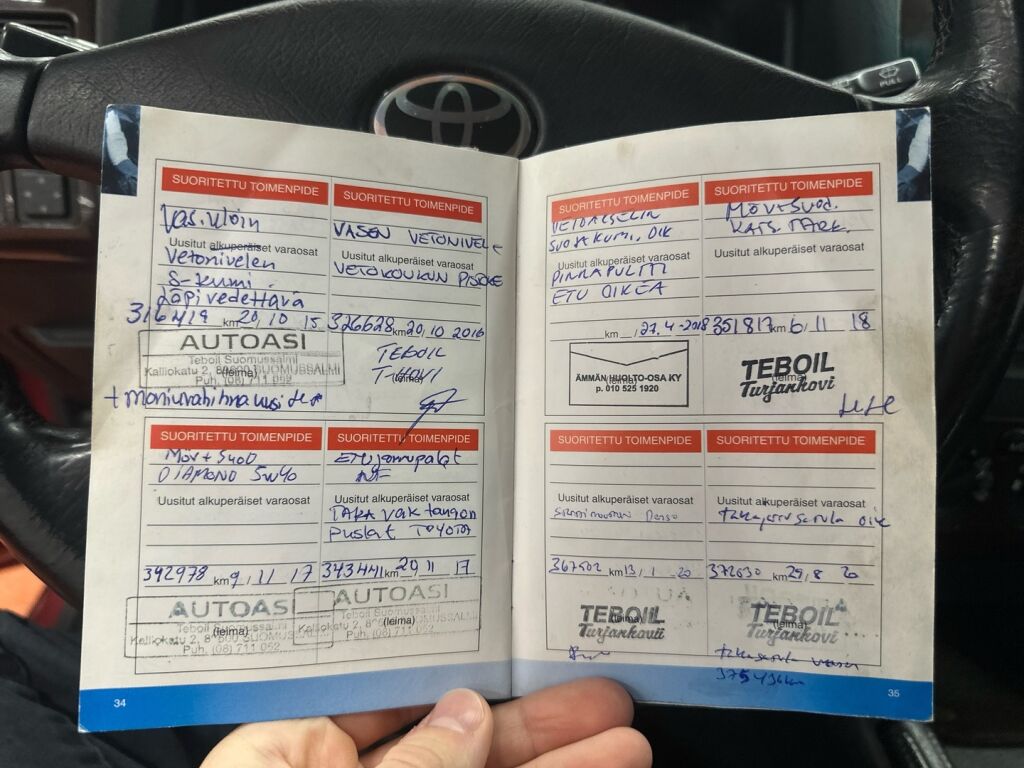 PULL
SUORITETTU TOIMENPIDE
Vas. 
Uusitut alkuperäiset varaosat
Vetonivelen
S-kumi.
Läpivedettävä
316419 km 20, 10 15
AUTOASI
Teboil Suomussalmi
Kalliokatu 2, 89600 SUOMUSSALMI
(leima)
Puh. (08) 711 052
SUORITETTU TOIMENPIDE
VASEN VETONIVELE
Uusitut alkuperäiset varaosat
VETOKOUKUN PISTOKE
326628 km 20, 10 2016
TEBOIL
T-HOVI
(leima)
SUORITETTU TOIMENPIDE
MÖV + SUOD
DIAMOND 5W40
Uusitut alkuperäiset varaosat
342978 km 9, 11 17
AUTOASI
Teboil Suomussalmi
(leima)
Kalliokatu 2, 89600 SUOMUSSALMI
Puh. (08) 711 052
SUORITETTU TOIMENPIDE
ETU jarrupalat
Uusitut alkuperäiset varaosat
TAKA vak tangon
puslat TOYOTA
343441 km 20 11 17
AUTOASI
Teboil Suomussalmi
Kalliokatu 2, 89600 SUOMUSSALMI
(leima)
Puh. (08) 711 052
34
SUORITETTU TOIMENPIDE
VETOAKSELIN
SUOJAKUMI, OIK
Uusitut alkuperäiset varaosat
PINNAPULTTI
ETU OIKEA
km 27. 4 - 2018
ÄMMÄN HUOLTO-OSA KY
p. 010 525 1920
SUORITETTU TOIMENPIDE
MÖV + SUOD.
KATS. TARK.
Uusitut alkuperäiset varaosat
351817 km 6, 11 18
TEBOIL
(leima)
Turjanhovi
SUORITETTU TOIMENPIDE
Uusitut alkuperäiset varaosat
Denso
367502 km 13, 1 20
TEBOIL
(leima)
Turjanhovi
SUORITETTU TOIMENPIDE
Uusitut alkuperäiset varaosat
takajarrusatula oik
372630 km 29, 8 20
TEBOIL
(leima)
Turjanhovi
takasatula vasen
375436km
35